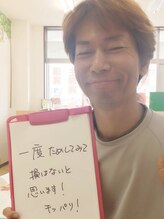 一度ためしてみて
損はないと
思います！
モッパツ！